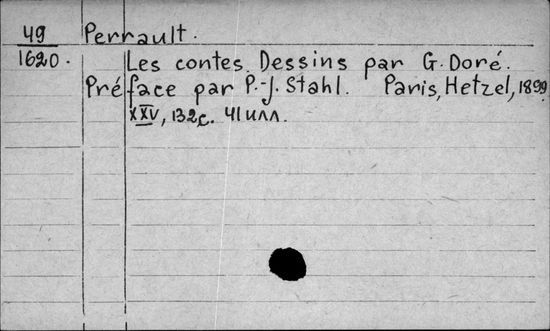 49 Perrault.
1620. Les contes. Dessins par G. Doré.
Préface par P.-J. Stahl. Paris, Hetzel, 1899
XXV, 132с. 41 илл.